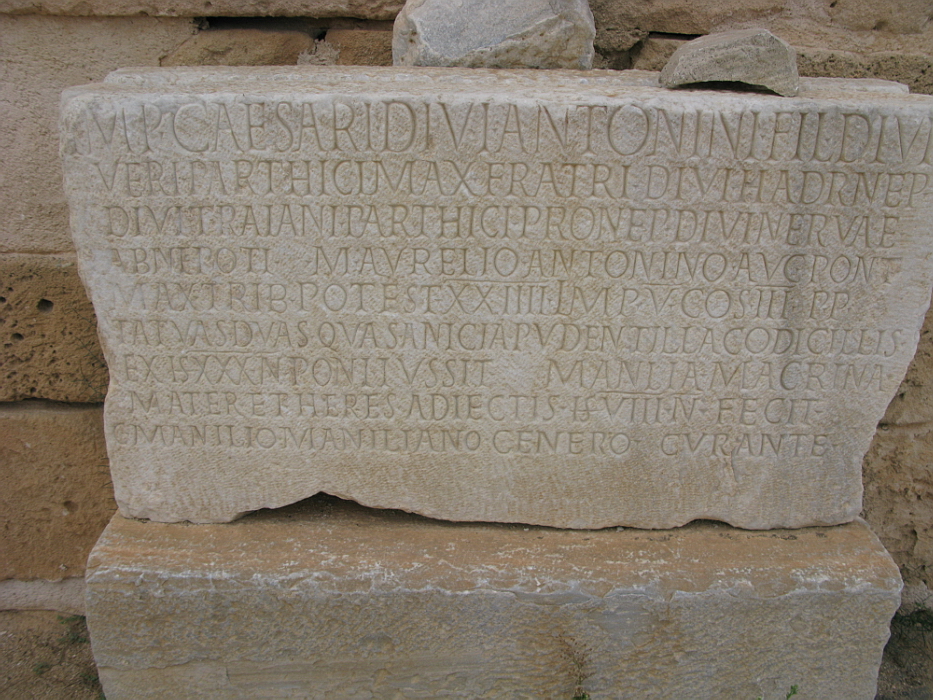 MP·CAESARI·DIVI·ANTONINI·FIL·DIVI
VERI·PARTHICI·MAX·FRATRI·DIVI·HADR·NEP
DIVI·TRAIANI·PARTHICI·PRONEP·DIVI·NERVAE
ABNEPOTI M·AVRELIO·ANTONINO·AVG·PONT
MAX·TRIB·POTEST·XXIIII·IMP·V·COS·III·PP
TATVAS·DVAS·QVAS·ANICIA·PVDENTILLA·CODICILLIS
EX·IS·XXX·N·PONI·IVSSIT MANLIA·MACRINA
MATER·ET·HERES·ADIECTIS·IS·VIII·N· FECIT·
C·MANILIO·MANILIANO·GENERO· CVRANTE·